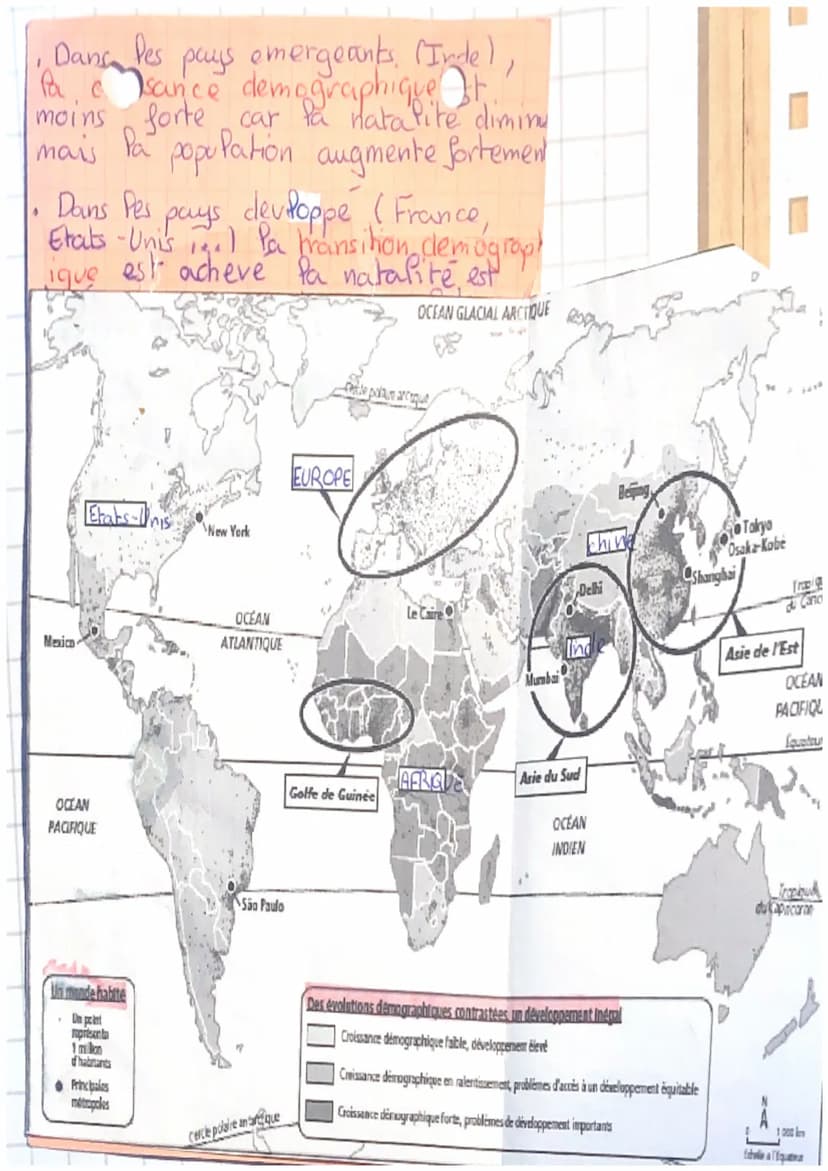 . Dans les pays emergeants (Inde),
la c sance demographique st
moins forte car la natalité diminu
mais la population augmente fortement
. Dans les pays devloppé (France,
Etats-Unis ...) la transition démograph
ique est achevé la natalité est
OCÉAN GLACIAL ARCTIQUE
Cercle polaire arctique
EUROPE
Etats-Unis
New York
Beijing
Tokyo
Osaka-Kobé
chine
Shanghai
Delhi
Le Caire
OCÉAN
ATLANTIQUE
Tropiq
du Canc
Mexico
Inde
Mumbai
Asie de l'Est
OCÉAN
PACIFIQU
Équateur
Asie du Sud
Golfe de Guinée
AFRIQUE
OCÉAN
PACIFIQUE
OCÉAN
INDIEN
São Paulo
Tropique
du Capricorne
Un monde habité
Un point
représente
1 million
d'habitants
Principales
métropoles
Des évolutions démographiques contrastées, un développement inégal
Croissance démographique faible, développement élevé
Croissance démographique en ralentissement, problèmes d'accès à un développement équitable
Croissance démographique forte, problèmes de développement importants
Cercle polaire antarctique
N
0 1 000 km
Échelle à l'Équateur